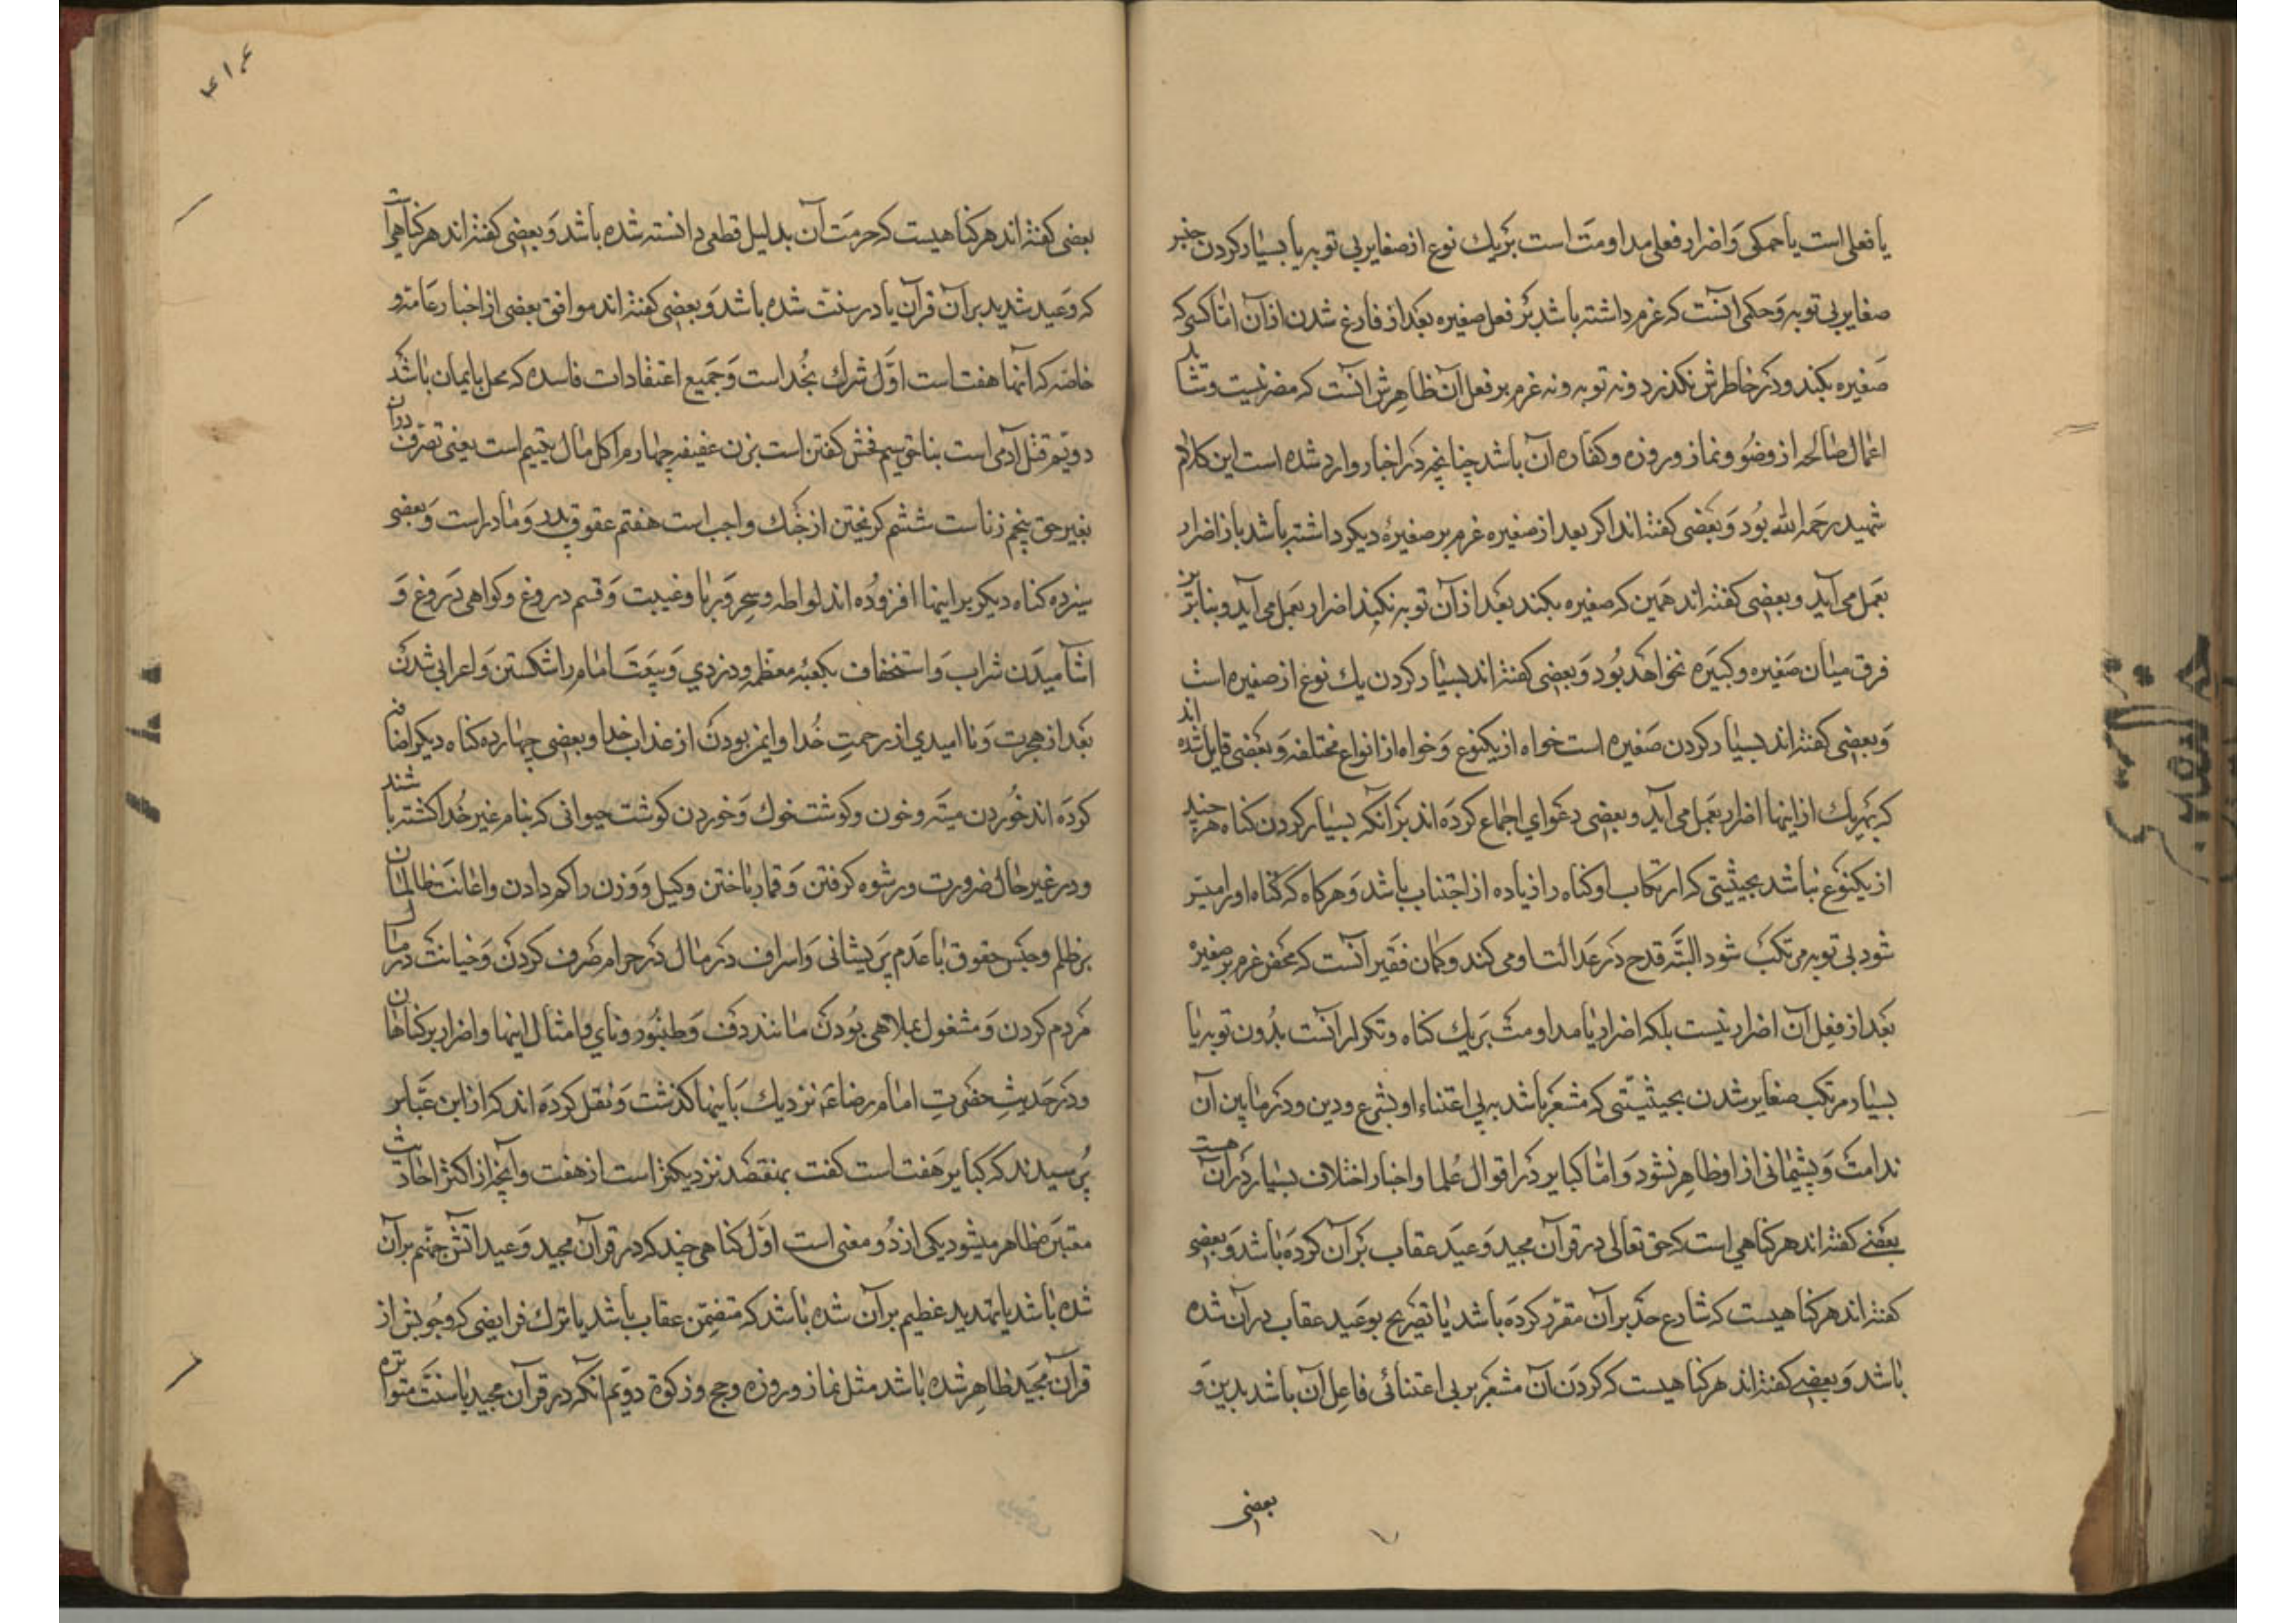 یا فعلی است یا حکمی و اصرار فعلی مداومت است بر یك نوع از صغایر بی توبه یا بسیار کردن جنس
صغایر بی توبه و حکمی آنست که عزم داشته باشد بر فعل صغیره بعد از فارغ شدن از آن اما کسی که
صغیره بکند و در خاطرش نکذرد و نه توبه و نه عزم بر فعل آن ظاهرش آنست که مضر نیست و شاید
اعمال صالحه از وضو و نماز و روزه و کفاره آن باشد چنانچه در اخبار وارد شده است این کلام
شهید رحمه الله بود و بعضی کفته اند اکر بعد از صغیره عزم بر صغیرهٔ دیکر داشته باشد باز اصرار
بعمل می آید و بعضی کفته اند همین که صغیره بکند بعد از آن توبه نکند اصرار بعمل می آید و بنابرین
فرق میان صغیره و کبیره نخواهد بود و بعضی کفته اند بسیار کردن یك نوع از صغیره است
و بعضی کفته اند بسیار کردن صغیره است خواه از یکنوع و خواه از انواع مختلفه و بعضی قایل شده اند
که بهریك از اینها اصرار بعمل می آید و بعضی دعوای اجماع کرده اند بر آنکه بسیار کردن کناه هرچند
از یکنوع نباشد بحیثیتی که ارتکاب او کناه را زیاده از اجتناب باشد و هرکاه که کناه او را میسر
شود بی توبه مرتکب شود البته قدح در عدالت او می کند و کمان فقیر آنست که محض عزم بر صغیره
بعد از فعل آن اصرار نیست بلکه اصرار یا مداومت بر یك کناه و تکرار آنست بدون توبه یا
بسیار مرتکب صغایر شدن بحیثیتی که مشعر باشد به بی اعتناء او بشرع و دین و در مابین آن
ندامت و پشیمانی از او ظاهر نشود و اما کبایر در اقوال علما و اخبار اختلاف بسیار در آن هست
بعضی کفته اند هر کناهی است که حق تعالی در قرآن مجید وعید عقاب بر آن کرده باشد و بعضی
کفته اند هر کناهیست که شارع حد بر آن مقرر کرده باشد یا تصریح بوعید عقاب در آن شده
باشد و بعضی کفته اند هر کناهیست که کردن آن مشعر بر بی اعتنائی فاعل آن باشد بدین و
بعضی
۴۱۴
بعضی کفته اند هر کناهیست که حرمت آن بدلیل قطعی دانسته شده باشد و بعضی کفته اند هر کناهی است
که وعید شدید بر آن قرآن یا در سنت شده باشد و بعضی کفته اند موافق بعضی از اخبار عامه و
خاصه که آنها هفت است اول شرك بخدا است و جمیع اعتقادات فاسده که مخل بایمان باشد
دویم قتل آدمی است بناحق سیم فحش کفتن است بزن عفیفه چهارم اکل مال یتیم است یعنی تصرف در آن
بغیر حق پنجم زناست ششم کریختن از جنك واجب است هفتم عقوق پدر و مادر است و بعضی
سیزده کناه دیکر بر اینها افزوده اند لواطه و سحر و ربا و غیبت و قسم دروغ و کواهی دروغ و
آشامیدن شراب و استخفاف بکعبهٔ معظمه و دزدی و بیعت امام را شکستن و اعرابی شدن
بعد از هجرت و ناامیدی از رحمت خدا و ایمن بودن از عذاب خدا و بعضی چهارده کناه دیکر اضافه
کرده اند خوردن میته و خون و کوشت خوك و خوردن کوشت حیوانی که بنام غیر خدا کشته باشند
و در غیر حال ضرورت و رشوه کرفتن و قمار باختن و کیل و وزن را کم دادن و اعانت ظالمان
بر ظلم و حبس حقوق با عدم پریشانی و اسراف در مال در حرام صرف کردن و خیانت در مال
مردم کردن و مشغول بملاهی بودن مانند دف و طنبور و نای و امثال اینها و اصرار بر کناهان
و در حدیث حضرت امام رضا ع نزدیك باینها کذشت و نقل کرده اند که از ابن عباس
پرسیدند که کبایر هفت است کفت بهفتصد نزدیکتر است از هفت و آنچه از اکثر احادیث
معتبره ظاهر میشود یکی از دو معنی است اول کناهی چند که در قرآن مجید وعید آتش جهنم بر آن
شده باشد یا تهدید عظیم بر آن شده باشد که متضمن عقاب باشد یا ترك فرایضی که وجوبش از
قرآن مجید ظاهر شده باشد مثل نماز و روزه و حج و زکوة دویم آنکه در قرآن مجید یا سنت متواتره